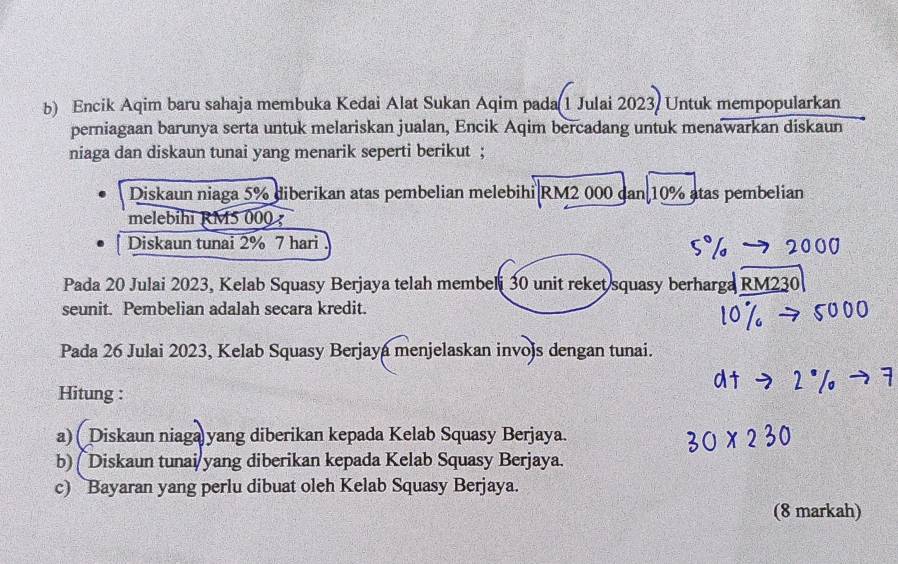 b) Encik Aqim baru sahaja membuka Kedai Alat Sukan Aqim pada 1 Julai 2023. Untuk mempopularkan
perniagaan barunya serta untuk melariskan jualan, Encik Aqim bercadang untuk menawarkan diskaun
niaga dan diskaun tunai yang menarik seperti berikut ;
• Diskaun niaga 5% diberikan atas pembelian melebihi RM2 000 dan 10% atas pembelian
melebihi RM5 000 ;
• Diskaun tunai 2% 7 hari .
5% → 2000
Pada 20 Julai 2023, Kelab Squasy Berjaya telah membeli 30 unit reket squasy berharga RM230
seunit. Pembelian adalah secara kredit.
10% → 5000
Pada 26 Julai 2023, Kelab Squasy Berjaya menjelaskan invois dengan tunai.
dt → 2% → 7
Hitung :
a) Diskaun niaga yang diberikan kepada Kelab Squasy Berjaya.
30 x 230
b) Diskaun tunai yang diberikan kepada Kelab Squasy Berjaya.
c) Bayaran yang perlu dibuat oleh Kelab Squasy Berjaya.
(8 markah)